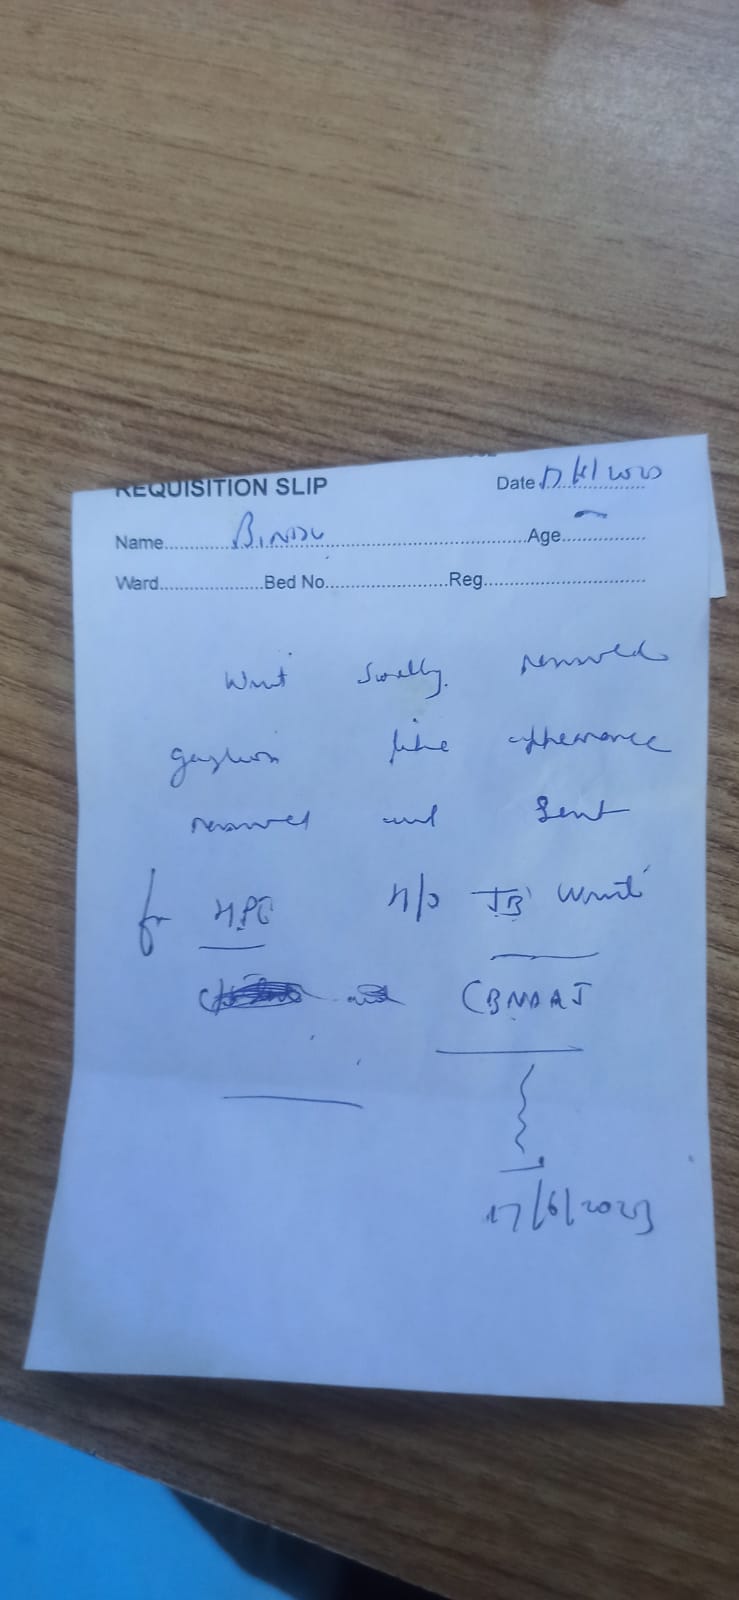 REQUISITION SLIP
Date
Name Bindu Age
Ward Bed No. Reg
Wrist removed
like appearance
removed and Sent
for HPE H/O TB wrist
and CBNAAT
17/6/2025